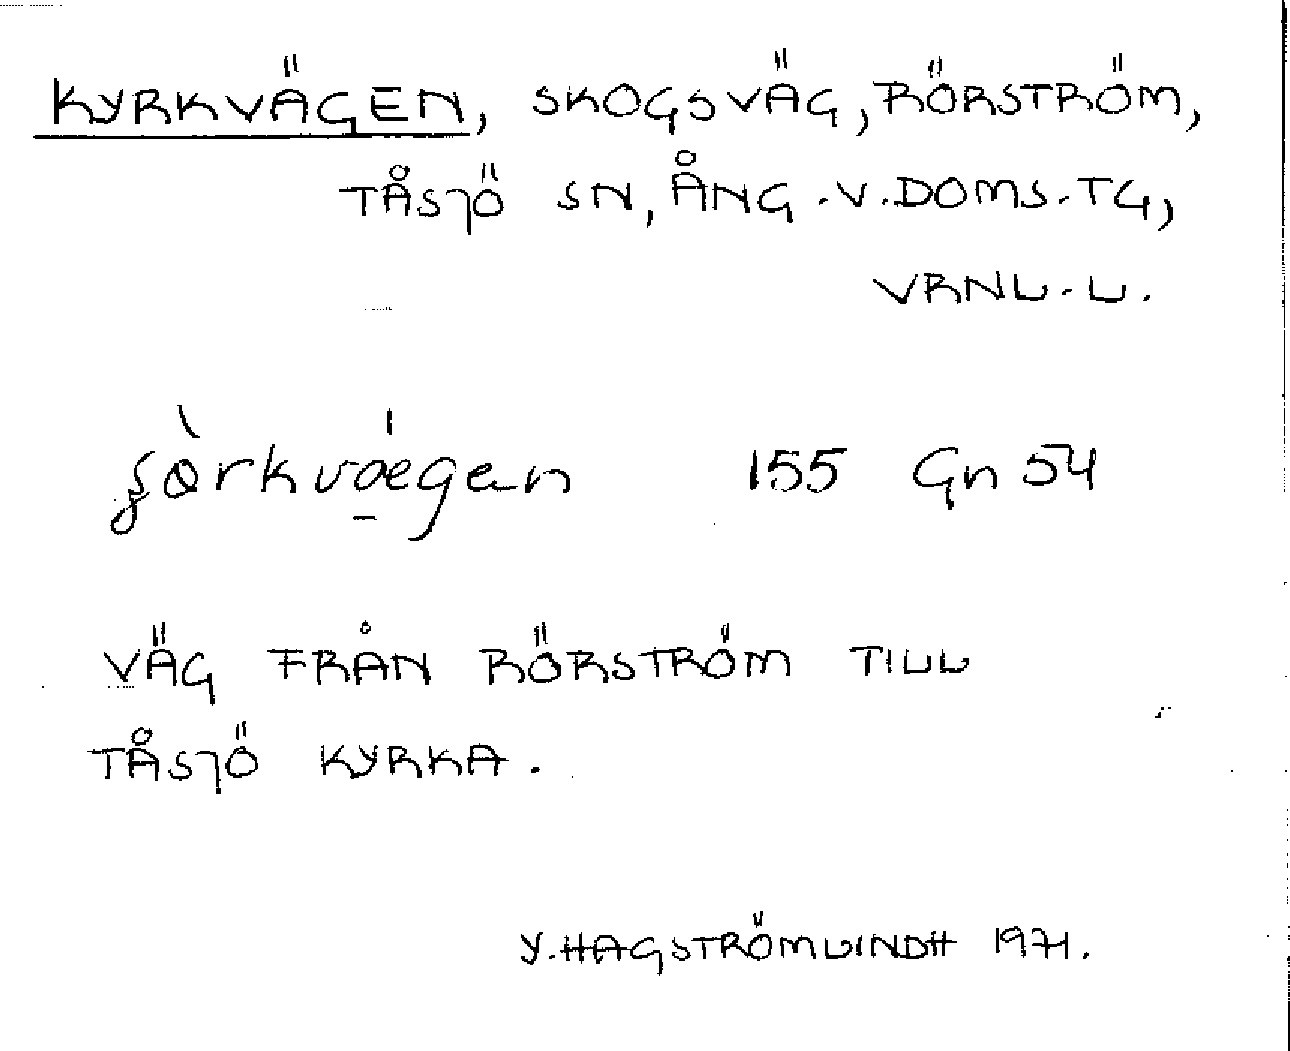 KYRKVÄGEN, SKOGSVÄG, RÖRSTRÖM,
TÅSJÖ SN, ÅNG.V.DOMS.TG,
VRNL.L.
155 Gn 54
VÄG FRÅN RÖRSTRÖM TILL
TÅSJÖ KYRKA.
Y. HAGSTRÖMLINDH 1971.